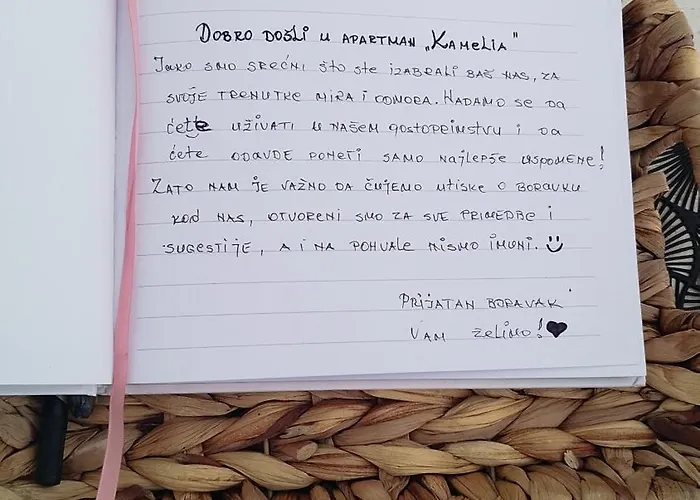 Dobro došli u apartman „Kamelia"
Jako smo srećni što ste izabrali baš nas, za
svoje trenutke mira i odmora. Nadamo se da
ćete uživati u našem gostoprimstvu i da
ćete odavde poneti samo najlepše uspomene!
Zato nam je važno da čujemo utiske o boravku
kod nas, otvoreni smo za sve primedbe i
sugestije, a i na pohvale nismo imuni. :)
Prijatan boravak
Vam želimo! ♥